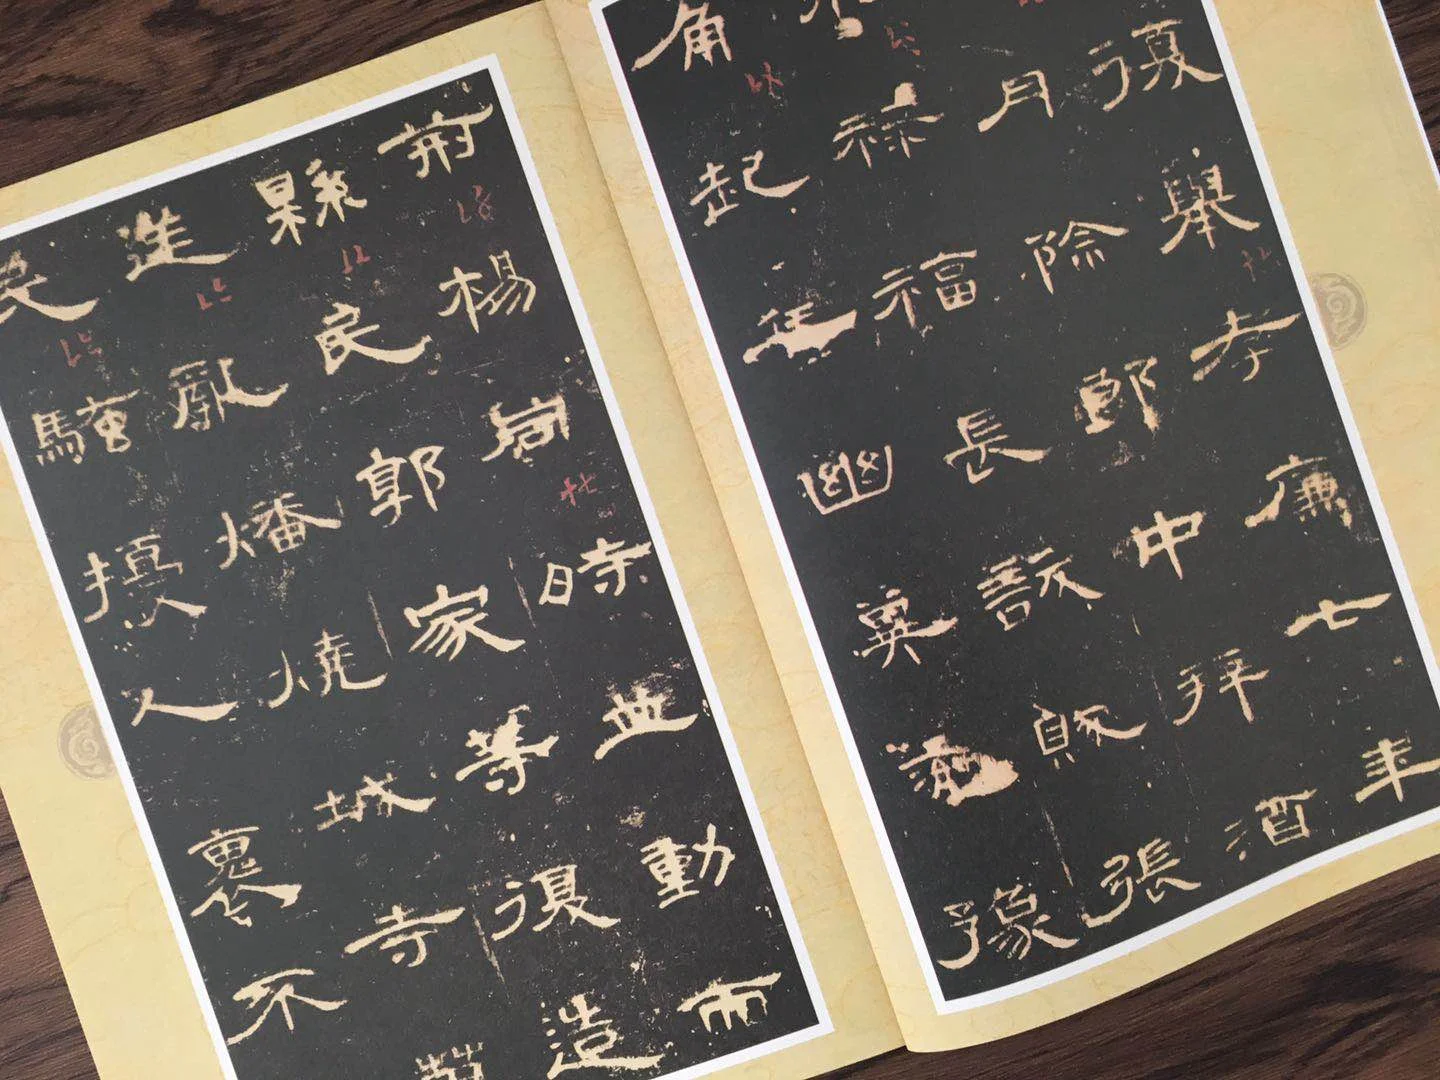 復舉孝廉七年
月除郎中拜酒
祿福長訞賊張
角起兵幽冀兗豫
荊楊同時並動而
縣民郭家等復造
逆亂燔燒城寺萬
民騷擾人裹不